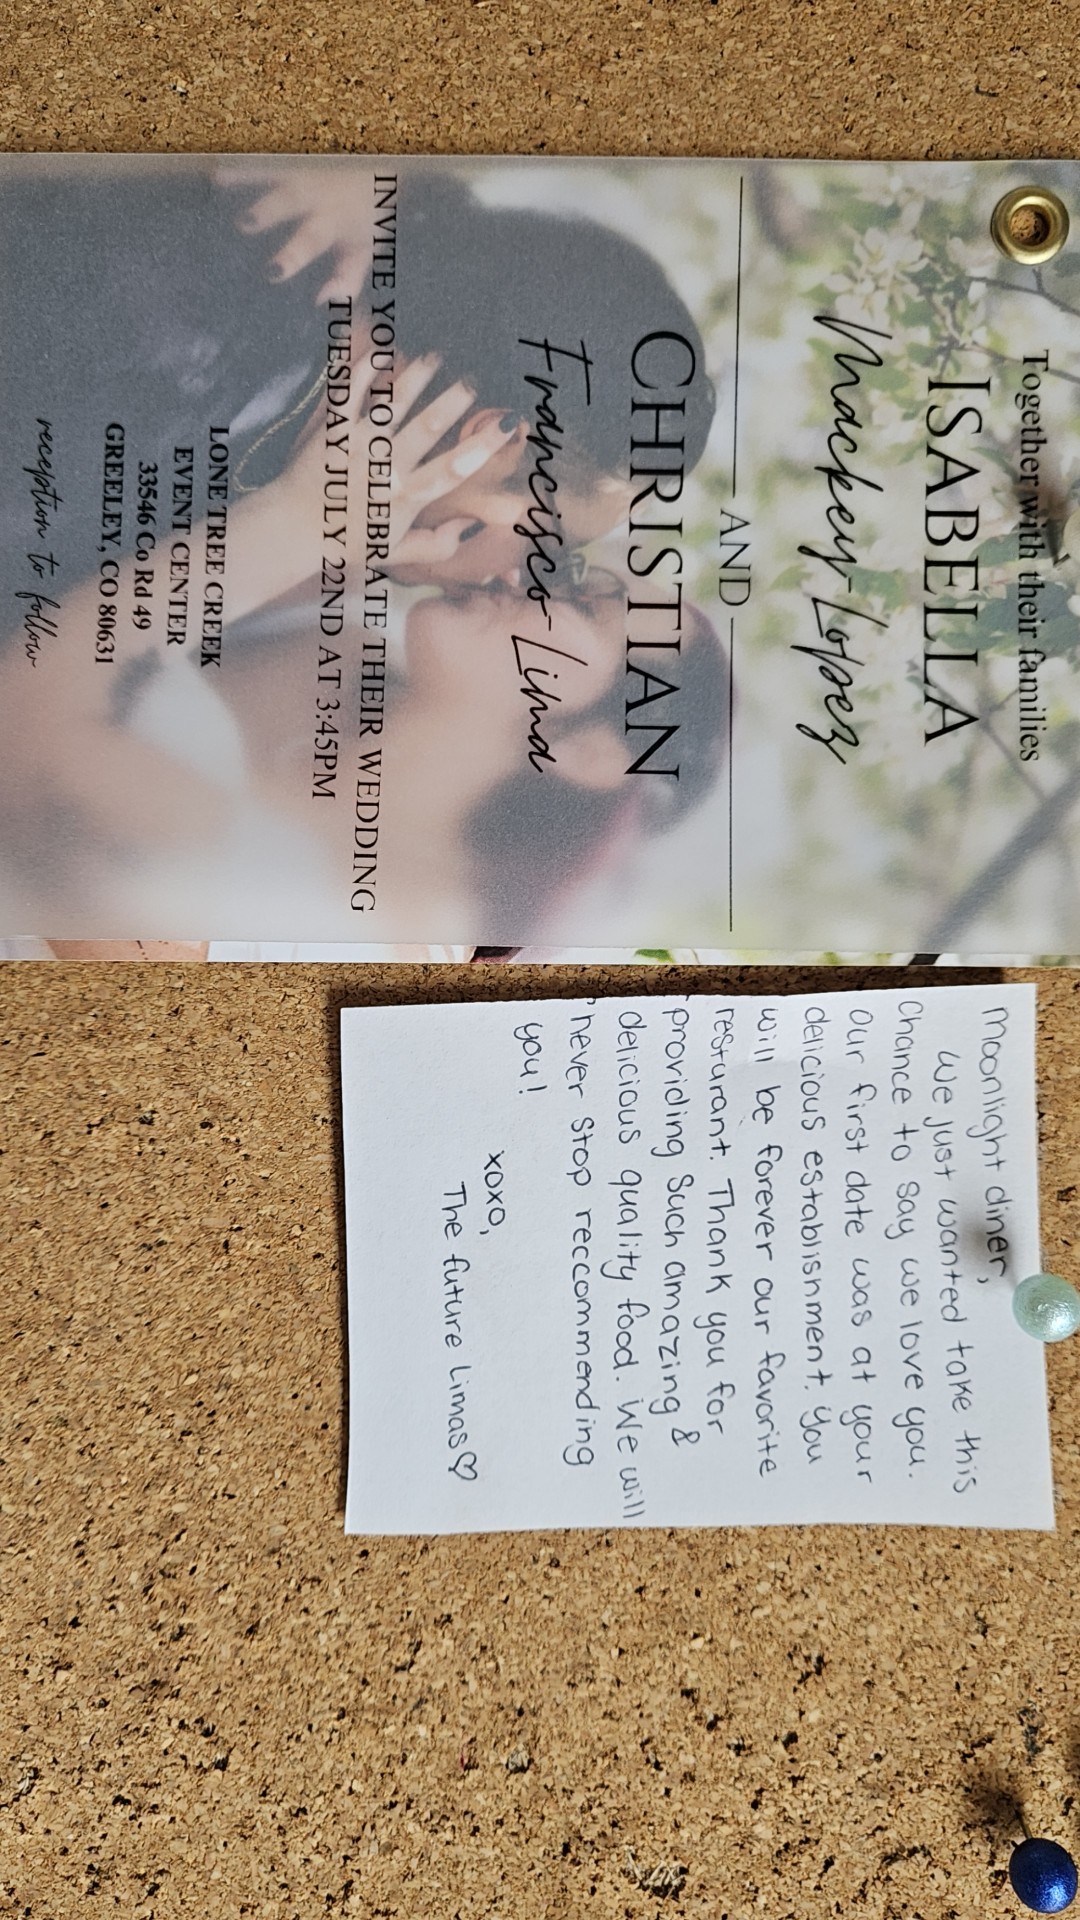 Together with their families
ISABELLA
Mackey-Lopez
AND
CHRISTIAN
Francisco-Lima
INVITE YOU TO CELEBRATE THEIR WEDDING
TUESDAY JULY 22ND AT 3:45PM
LONE TREE CREEK
EVENT CENTER
33546 Co Rd 49
GREELEY, CO 80631
reception to follow
moonlight diner,
We just wanted take this
Chance to say we love you.
Our first date was at your
delicious establishment. You
will be forever our favorite
resturant. Thank you for
providing such amazing &
delicious quality food. We will
never stop reccommending
you!
xoxo,
The future Limas♡